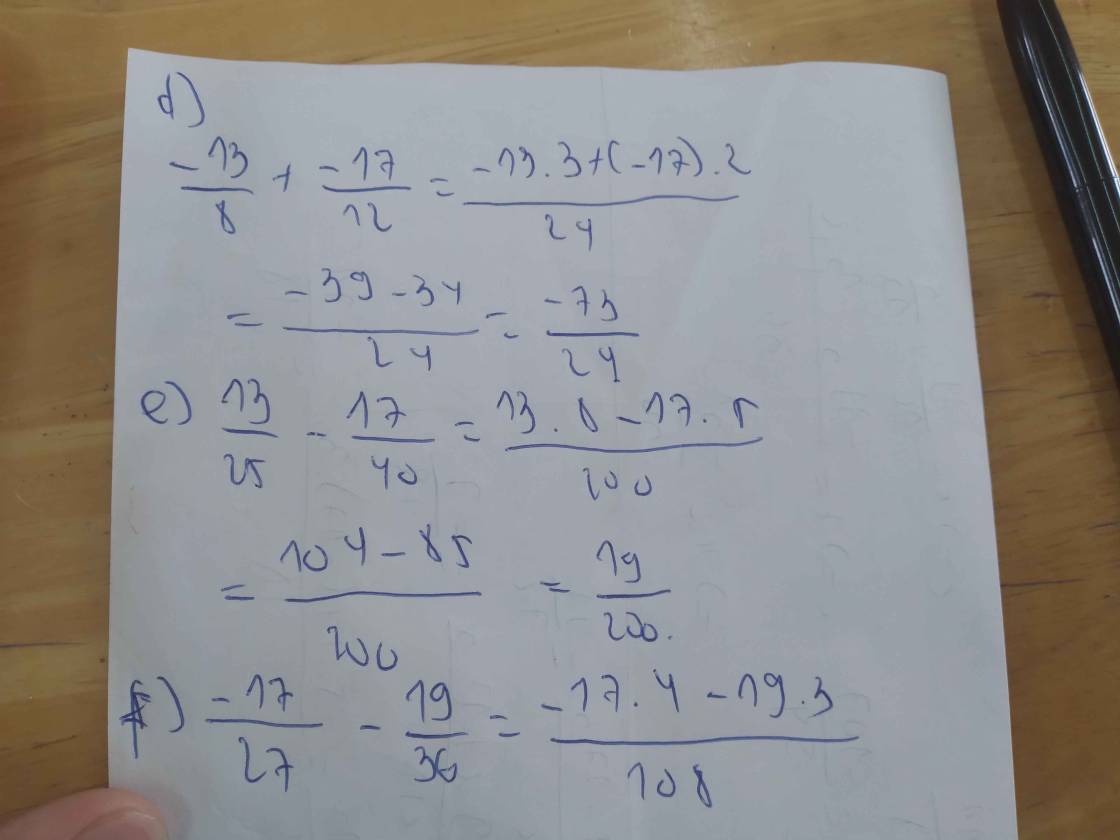 d)
-13/8 + -17/12 = -13.3+(-17).2/24
= -39-34/24 = -73/24
e) 13/25 - 17/40 = 13.8-17.5/200
= 104-85/200 = 19/200.
f) -17/27 - 19/36 = -17.4-19.3/108